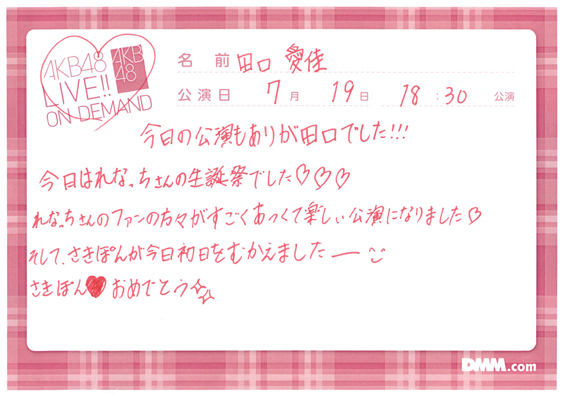 AKB48
LIVE!!
ON DEMAND
AKB
48
名前 田口 愛佳
公演日 7月 19日 18:30 公演
今日の公演もありが田口でした!!!
今日はれなっちさんの生誕祭でした♡♡♡
れなっちさんのファンの方々がすごくあつくて楽しい公演になりました♡
そして、さきぽんが今日初日をむかえましたー
さきぽん♥おめでとう☆☆
DMM.com